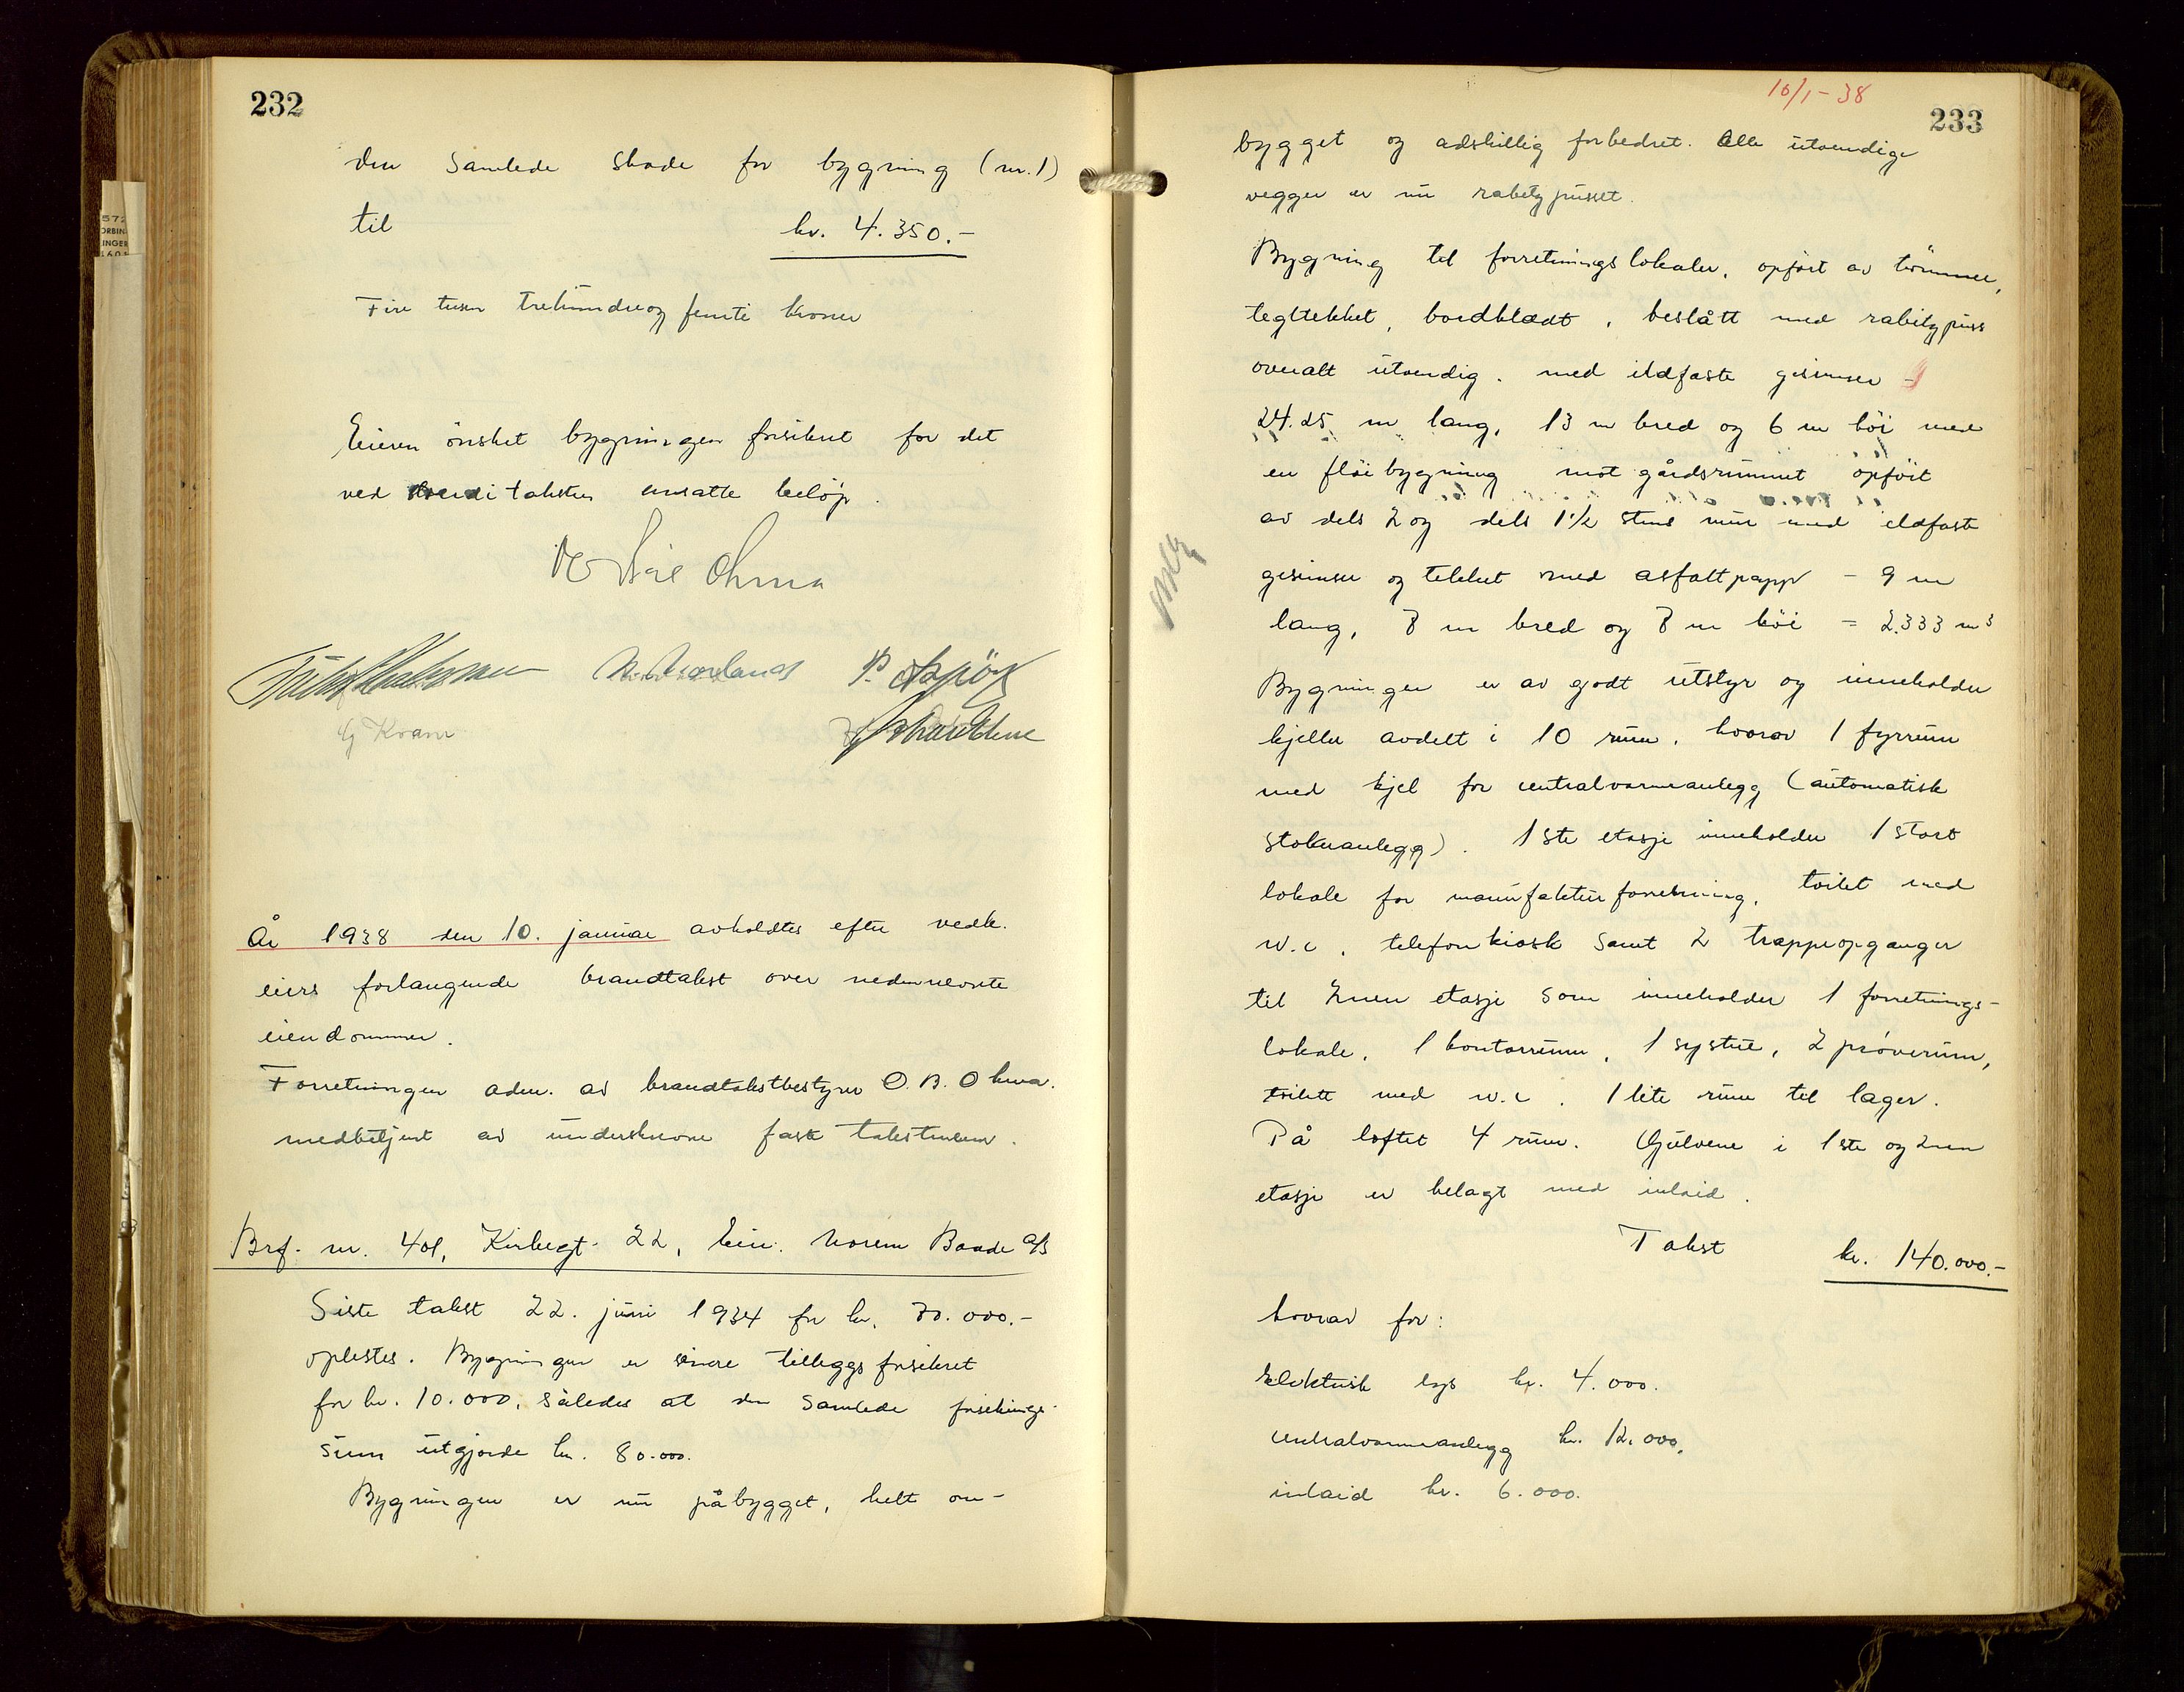 232
den samlede skade for bygning (nr. 1)
til kr. 4.350.-
Fire tusen trehundreogfemti kroner
Eieren ønsket bygningen forsikret for det
ved verditaksten ansatte beløp.
Ohma
G Kvam
År 1938 den 10. januar avholdtes efter vedk.
eiers forlangende brandtakst over nedennevnte
eiendommer.
Forretningen adm. av brandtakstbestyrer O. B. Ohma.
medbetjent av underskrevne faste takstmenn.
Brf. nr. 401, Kirkegt. 22, Eier: Norem Baade A/S
Siste takst 22. juni 1934 for kr. 70.000.-
oplestes. Bygningen er senere tilleggsforsikret
for kr. 10.000, således at den samlede forsikrings-
sum utgjorde kr. 80.000.
Bygningen er nu påbygget, helt om-
10/1-38
233
bygget og adskillig forbedret. Alle utvendige
vegger er nu rabitzpusset.
Bygning til forretningslokaler, opført av tømmer,
tegltekket, bordklædt, beslått med rabitzpuss
overalt utvendig. med ildfaste gesimser -
24.25 m lang, 13 m bred og 6 m høi med
en fløibygning mot gårdsrummet opført
av dels 2 og dels 1 1/2 stens mur med ildfaste
gesimser og tekket med asfaltpapp - 9 m
lang, 8 m bred og 8 m høi = 2.333 m³
Bygningen er av godt utstyr og inneholder
kjeller avdelt i 10 rum, hvorav 1 fyrrum
med kjel for centralvarmeanlegg (automatisk
stokeranlegg). 1ste etasje inneholder 1 stort
lokale for manufakturforretning, toilet med
w.c, telefonkiosk samt 2 trappeopganger
til 2nen etasje som inneholder 1 forretnings-
lokale, 1 kontorrum, 1 systue, 2 prøverum,
toilett med w.c. 1 lite rum til lager.
På loftet 4 rum. Gulvene i 1ste og 2nen
etasje er belagt med inlaid.
Takst kr. 140.000.-
hvorav for:
Elektrisk lys kr. 4.000.
centralvarmeanlegg kr. 12.000,
inlaid kr. 6.000.